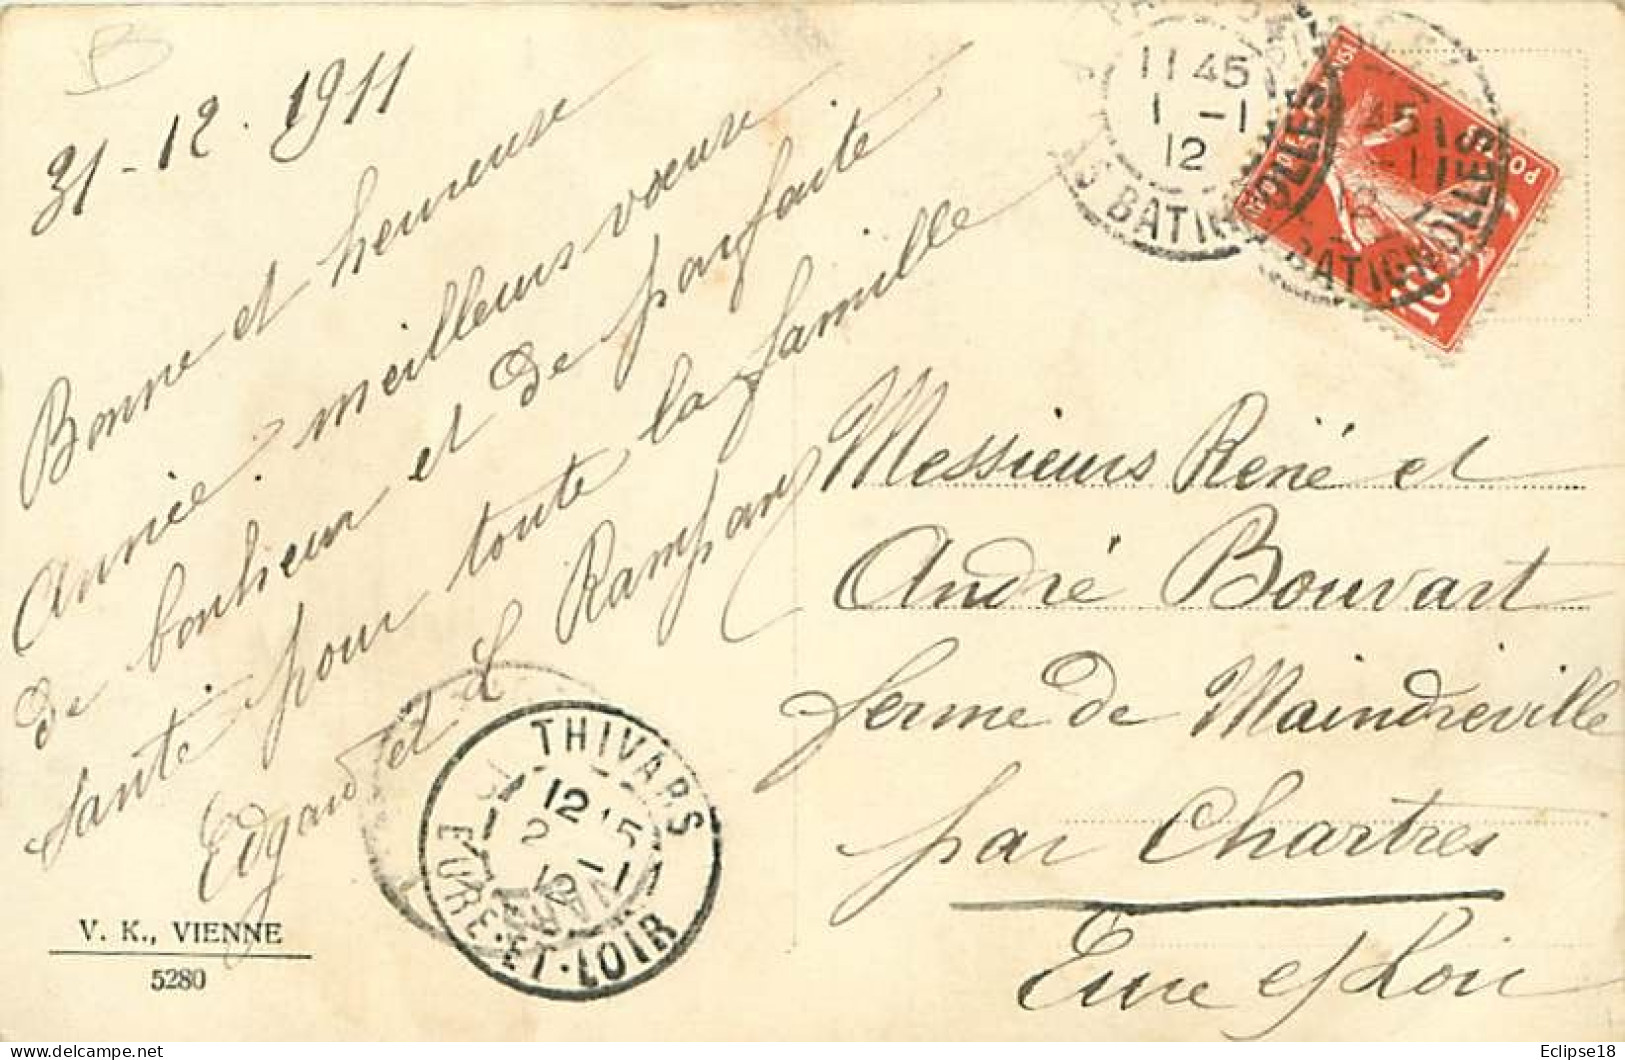 31-12.1911
Bonne et heureuse
Année! meilleurs vœux
de bonheur et de parfaite
santé pour toute la famille
Edgard et L Rampany
V. K., VIENNE
5280
THIVARS
12 15
2 - 1
12
EURE-ET-LOIR
11 45
1 - 1
12
BATIGNOLLES
BATIGNOLLES
POS
10
Messieurs René et
André Bouvart
ferme de Maindreville
par Chartres
Eure et Loir
Eclipse18